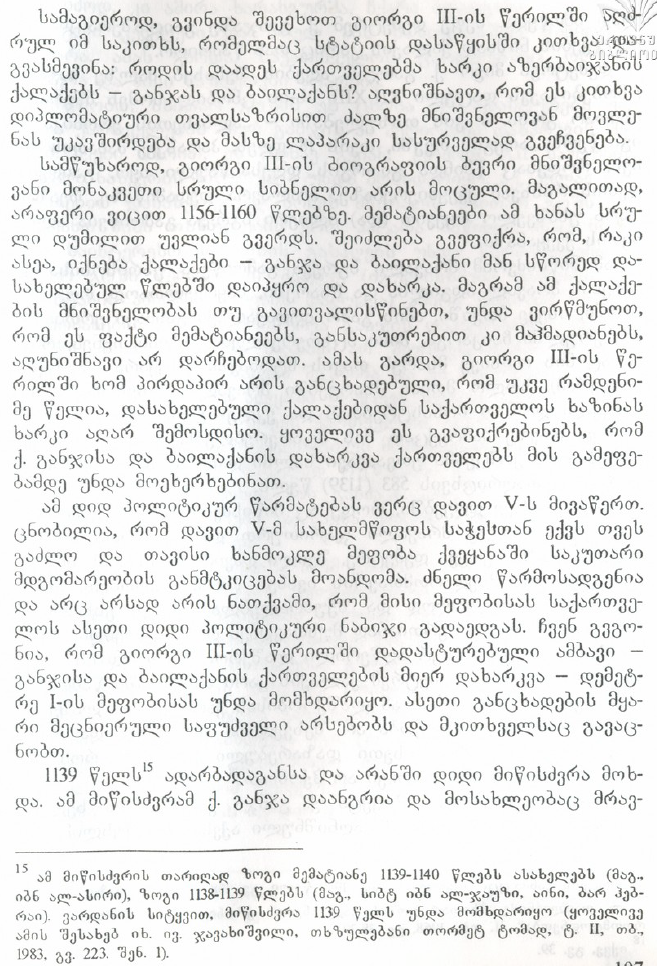 სამაგიეროდ, გვინდა შევეხოთ გიორგი III-ის წერილში აღძ-
რულ იმ საკითხს, რომელმაც სტატიის დასაწყისში კითხვა
გვასმევინა: როდის დაადეს ქართველებმა ხარკი აზერბაიჯანის
ქალაქებს – განჯას და ბაილაქანს? აღვნიშნავთ, რომ ეს კითხვა
დიპლომატიური თვალსაზრისით ძალზე მნიშვნელოვან მოვლე-
ნას უკავშირდება და მასზე ლაპარაკი სასურველად გვეჩვენება.
სამწუხაროდ, გიორგი III-ის ბიოგრაფიის ბევრი მნიშვნელო-
ვანი მონაკვეთი სრული სიბნელით არის მოცული. მაგალითად,
არაფერი ვიცით 1156-1160 წლებზე. მემატიანეები ამ ხანას სრუ-
ლი დუმილით უვლიან გვერდს. შეიძლება გვეფიქრა, რომ, რაკი
ასეა, იქნება ქალაქები – განჯა და ბაილაქანი მან სწორედ და-
სახელებულ წლებში დაიპყრო და დახარკა. მაგრამ ამ ქალაქე-
ბის მნიშვნელობას თუ გავითვალისწინებთ, უნდა ვირწმუნოთ,
რომ ეს ფაქტი მემატიანეებს, განსაკუთრებით კი მაჰმადიანებს,
აღუნიშნავი არ დარჩებოდათ. ამას გარდა, გიორგი III-ის წე-
რილში ხომ პირდაპირ არის განცხადებული, რომ უკვე რამდენი-
მე წელია, დასახელებული ქალაქებიდან საქართველოს ხაზინას
ხარკი აღარ შემოსდისო. ყოველივე ეს გვაფიქრებინებს, რომ
ქ. განჯისა და ბაილაქანის დახარკვა ქართველებს მის გამეფე-
ბამდე უნდა მოეხერხებინათ.
ამ დიდ პოლიტიკურ წარმატებას ვერც დავით V-ს მივაწერთ.
ცნობილია, რომ დავით V-მ სახელმწიფოს საჭესთან ექვს თვეს
გაძლო და თავისი ხანმოკლე მეფობა ქვეყანაში საკუთარი
მდგომარეობის განმტკიცებას მოანდომა. ძნელი წარმოსადგენია
და არც არსად არის ნათქვამი, რომ მისი მეფობისას საქართვე-
ლოს ასეთი დიდი პოლიტიკური ნაბიჯი გადაედგას. ჩვენ გვგო-
ნია, რომ გიორგი III-ის წერილში დადასტურებული ამბავი –
განჯისა და ბაილაქანის ქართველების მიერ დახარკვა – დემეტ-
რე I-ის მეფობისას უნდა მომხდარიყო. ასეთი განცხადების მყა-
რი მეცნიერული საფუძველი არსებობს და მკითხველსაც გავაც-
ნობთ.
1139 წელს15 ადარბადაგანსა და არანში დიდი მიწისძვრა მოხ-
და. ამ მიწისძვრამ ქ. განჯა დაანგრია და მოსახლეობაც მრავ-
15 ამ მიწისძვრის თარიღად ზოგი მემატიანე 1139-1140 წლებს ასახელებს (მაგ.,
იბნ ალ-ასირი), ზოგი 1138-1139 წლებს (მაგ., სიბტ იბნ ალ-ჯაუზი, აინი, ბარ ჰებ-
რაი). ვარდანის სიტყვით, მიწისძვრა 1139 წელს უნდა მომხდარიყო (ყოველივე
ამის შესახებ იხ. ივ. ჯავახიშვილი, თხზულებანი თორმეტ ტომად, ტ. II, თბ.,
1983, გვ. 223. შენ. 1).